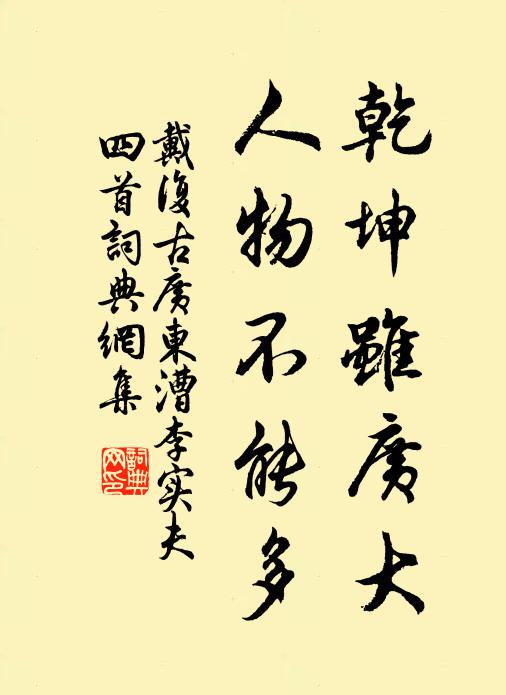 乾坤雖廣大
人物不能多
戴復古廣東漕李实夫
四首詞典網集
詞典
网印